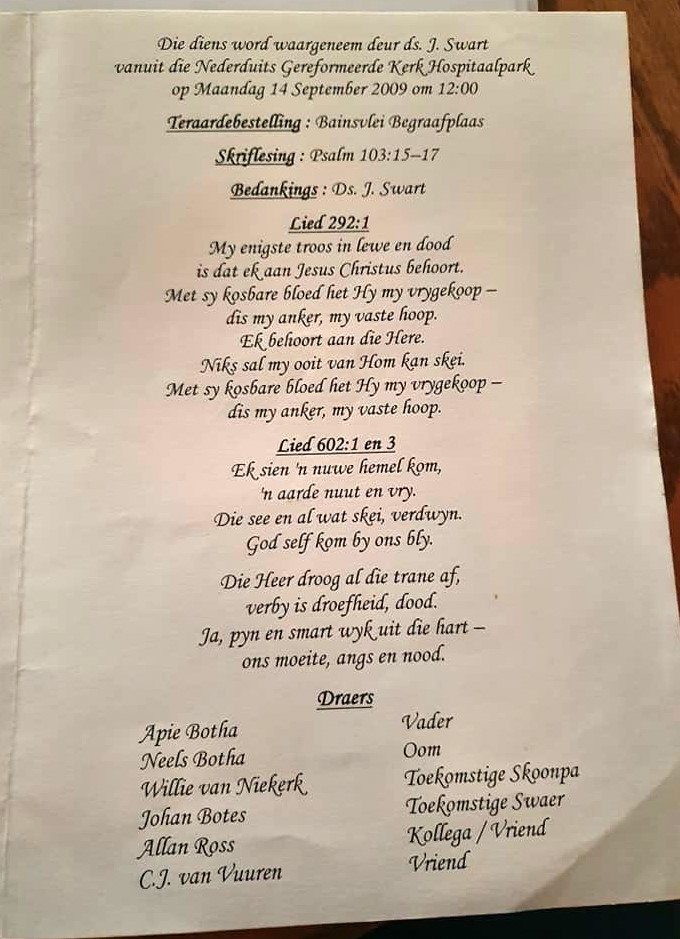 Die diens word waargeneem deur ds. J. Swart
vanuit die Nederduits Gereformeerde Kerk Hospitaalpark
op Maandag 14 September 2009 om 12:00
Teraardebestelling : Bainsvlei Begraafplaas
Skriflesing : Psalm 103:15–17
Bedankings : Ds. J. Swart
Lied 292:1
My enigste troos in lewe en dood
is dat ek aan Jesus Christus behoort.
Met sy kosbare bloed het Hy my vrygekoop –
dis my anker, my vaste hoop.
Ek behoort aan die Here.
Niks sal my ooit van Hom kan skei.
Met sy kosbare bloed het Hy my vrygekoop –
dis my anker, my vaste hoop.
Lied 602:1 en 3
Ek sien 'n nuwe hemel kom,
'n aarde nuut en vry.
Die see en al wat skei, verdwyn.
God self kom by ons bly.
Die Heer droog al die trane af,
verby is droefheid, dood.
Ja, pyn en smart wyk uit die hart –
ons moeite, angs en nood.
Draers
Apie Botha Vader
Neels Botha Oom
Willie van Niekerk Toekomstige Skoonpa
Johan Botes Toekomstige Swaer
Allan Ross Kollega / Vriend
C.J. van Vuuren Vriend